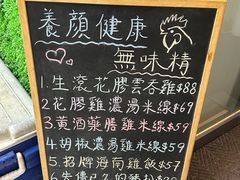 養顏健康
無味精
1.生滾花膠雲吞雞$88
2.花膠雞濃湯米線$69
3.黃酒藥膳雞米線$59
4.胡椒濃湯雞米線$59
5.招牌海南雞飯$57
6.失傳已久的